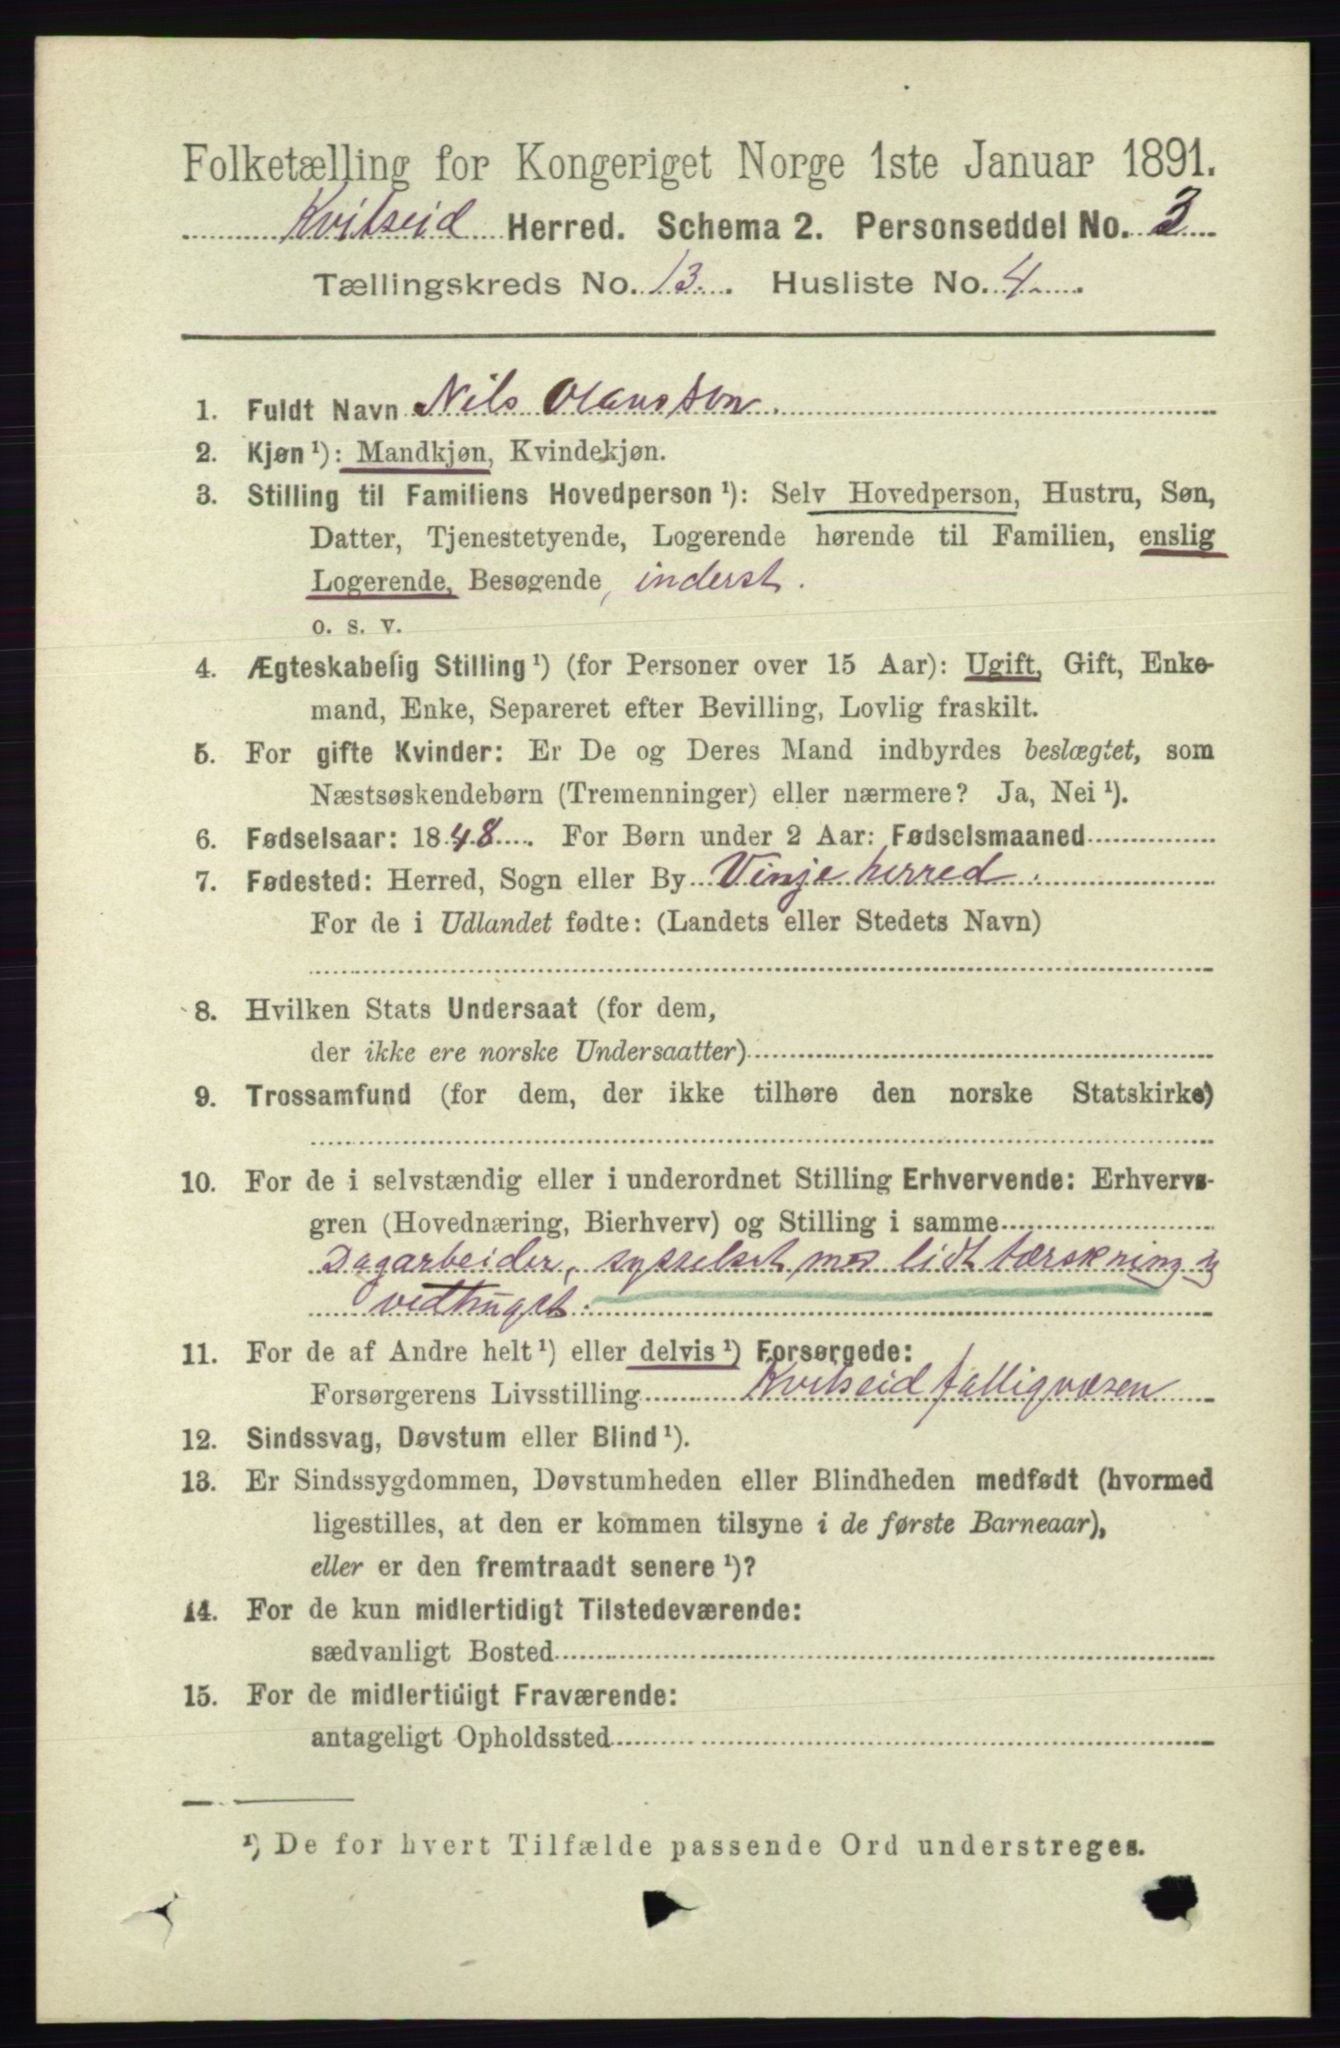 Folketælling for Kongeriget Norge 1ste Januar 1891.
Kvitseid Herred. Schema 2. Personseddel No. 3
Tællingskreds No. 13. Husliste No. 4
1. Fuldt Navn Nils Olausson.
2. Kjøn ¹): Mandkjøn, Kvindekjøn.
3. Stilling til Familiens Hovedperson ¹): Selv Hovedperson, Hustru, Søn,
Datter, Tjenestetyende, Logerende hørende til Familien, enslig
Logerende, Besøgende, inderst.
o. s. v.
4. Ægteskabelig Stilling ¹) (for Personer over 15 Aar): Ugift, Gift, Enke-
mand, Enke, Separeret efter Bevilling, Lovlig fraskilt.
5. For gifte Kvinder: Er De og Deres Mand indbyrdes beslægtet, som
Næstsøskendebørn (Tremenninger) eller nærmere? Ja, Nei ¹).
6. Fødselsaar: 1848. For Børn under 2 Aar: Fødselsmaaned
7. Fødested: Herred, Sogn eller By Vinje herred.
For de i Udlandet fødte: (Landets eller Stedets Navn)
8. Hvilken Stats Undersaat (for dem,
der ikke ere norske Undersaatter)
9. Trossamfund (for dem, der ikke tilhøre den norske Statskirke)
10. For de i selvstændig eller i underordnet Stilling Erhvervende: Erhvervs-
gren (Hovednæring, Bierhverv) og Stilling i samme
Dagarbeider, sysselsat med lidt tærskning og
vedhuget.
11. For de af Andre helt ¹) eller delvis ¹) Forsørgede:
Forsørgerens Livsstilling Kvitseid fattigvæsen
12. Sindssvag, Døvstum eller Blind ¹).
13. Er Sindssygdommen, Døvstumheden eller Blindheden medfødt (hvormed
ligestilles, at den er kommen tilsyne i de første Barneaar),
eller er den fremtraadt senere ¹)?
14. For de kun midlertidigt Tilstedeværende:
sædvanligt Bosted
15. For de midlertidigt Fraværende:
antageligt Opholdssted
¹) De for hvert Tilfælde passende Ord understreges.